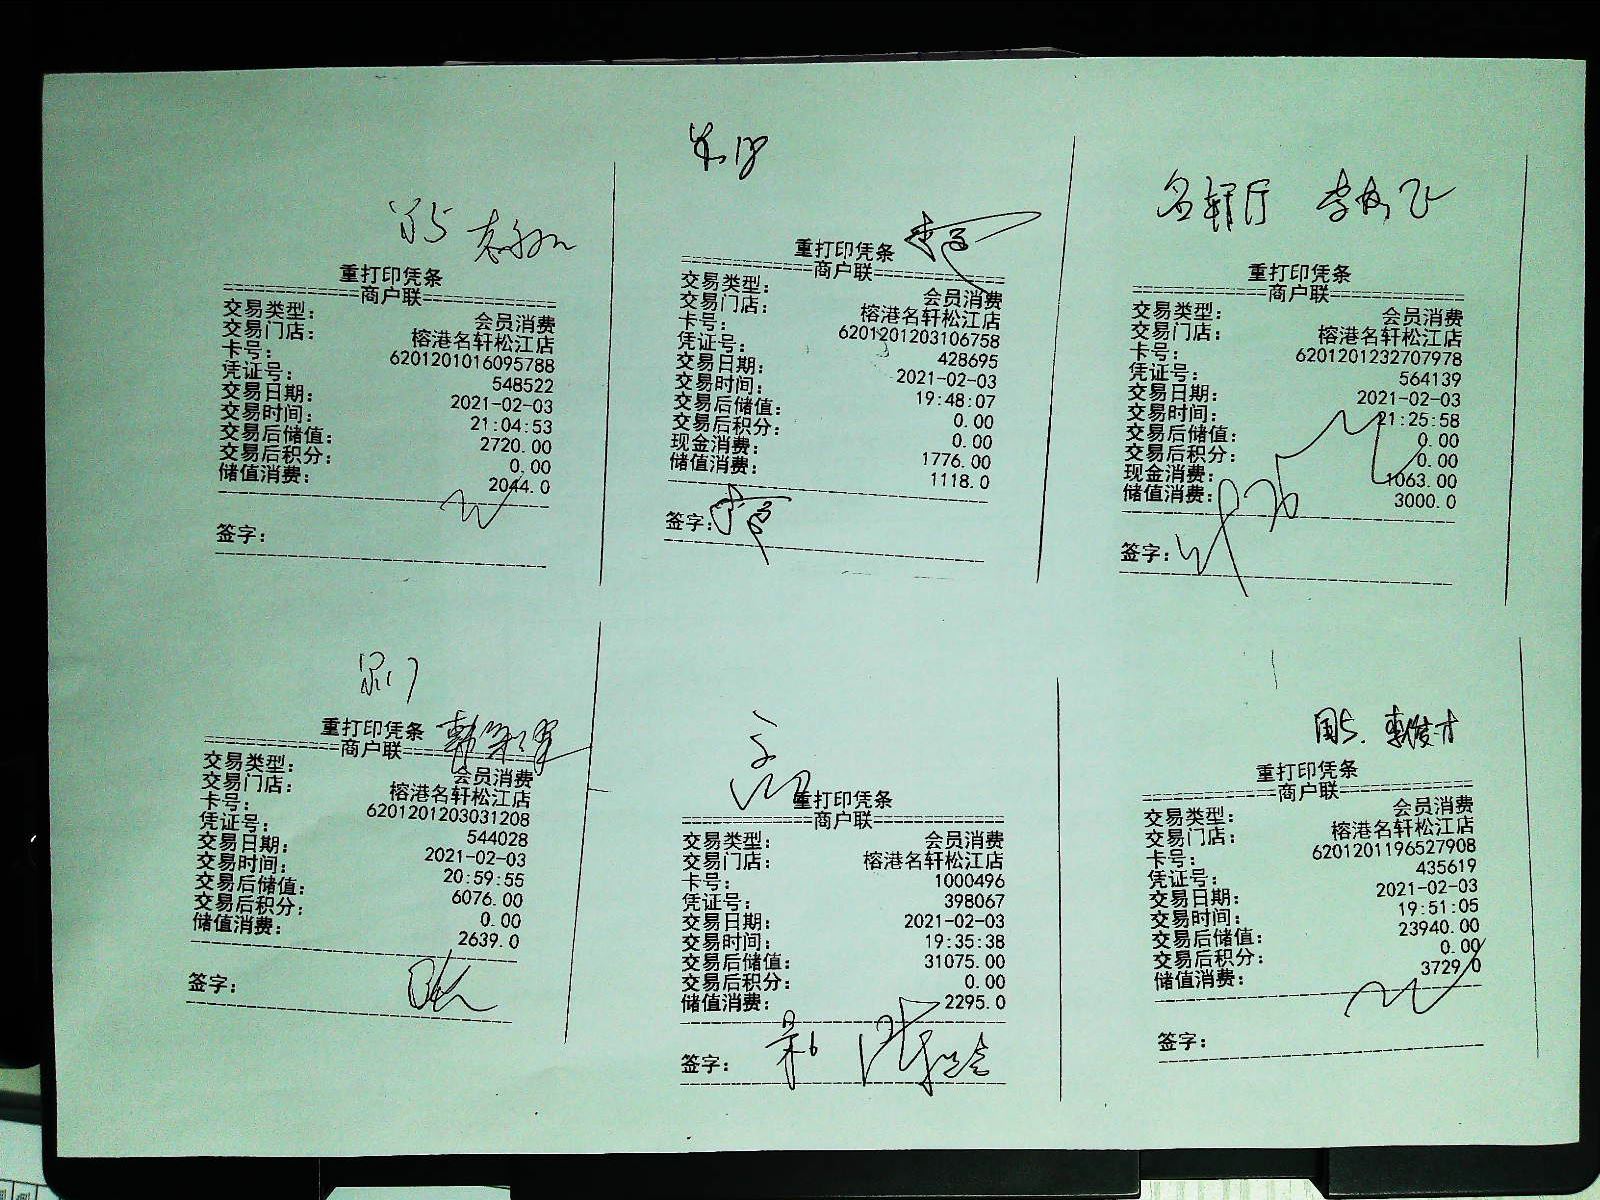 重打印凭条
商户联
交易类型： 会员消费
交易门店： 榕港名轩松江店
卡号： 6201201016095788
凭证号： 548522
交易日期： 2021-02-03
交易时间： 21:04:53
交易后储值： 2720.00
交易后积分： 0.00
储值消费： 2044.0
签字：
重打印凭条
商户联
交易类型： 会员消费
交易门店： 榕港名轩松江店
卡号： 6201201203106758
凭证号： 428695
交易日期： 2021-02-03
交易时间： 19:48:07
交易后储值： 0.00
交易后积分： 0.00
现金消费： 1776.00
储值消费： 1118.0
签字：
名轩厅
重打印凭条
商户联
交易类型： 会员消费
交易门店： 榕港名轩松江店
卡号： 6201201232707978
凭证号： 564139
交易日期： 2021-02-03
交易时间： 21:25:58
交易后储值： 0.00
交易后积分： 0.00
现金消费： 1063.00
储值消费： 3000.0
签字：
重打印凭条
商户联
交易类型： 会员消费
交易门店： 榕港名轩松江店
卡号： 6201201203031208
凭证号： 544028
交易日期： 2021-02-03
交易时间： 20:59:55
交易后储值： 6076.00
交易后积分： 0.00
储值消费： 2639.0
签字：
重打印凭条
商户联
交易类型： 会员消费
交易门店： 榕港名轩松江店
卡号： 1000496
凭证号： 398067
交易日期： 2021-02-03
交易时间： 19:35:38
交易后储值： 31075.00
交易后积分： 0.00
储值消费： 2295.0
签字：
重打印凭条
商户联
交易类型： 会员消费
交易门店： 榕港名轩松江店
卡号： 6201201196527908
凭证号： 435619
交易日期： 2021-02-03
交易时间： 19:51:05
交易后储值： 23940.00
交易后积分： 0.00
储值消费： 3729.0
签字：